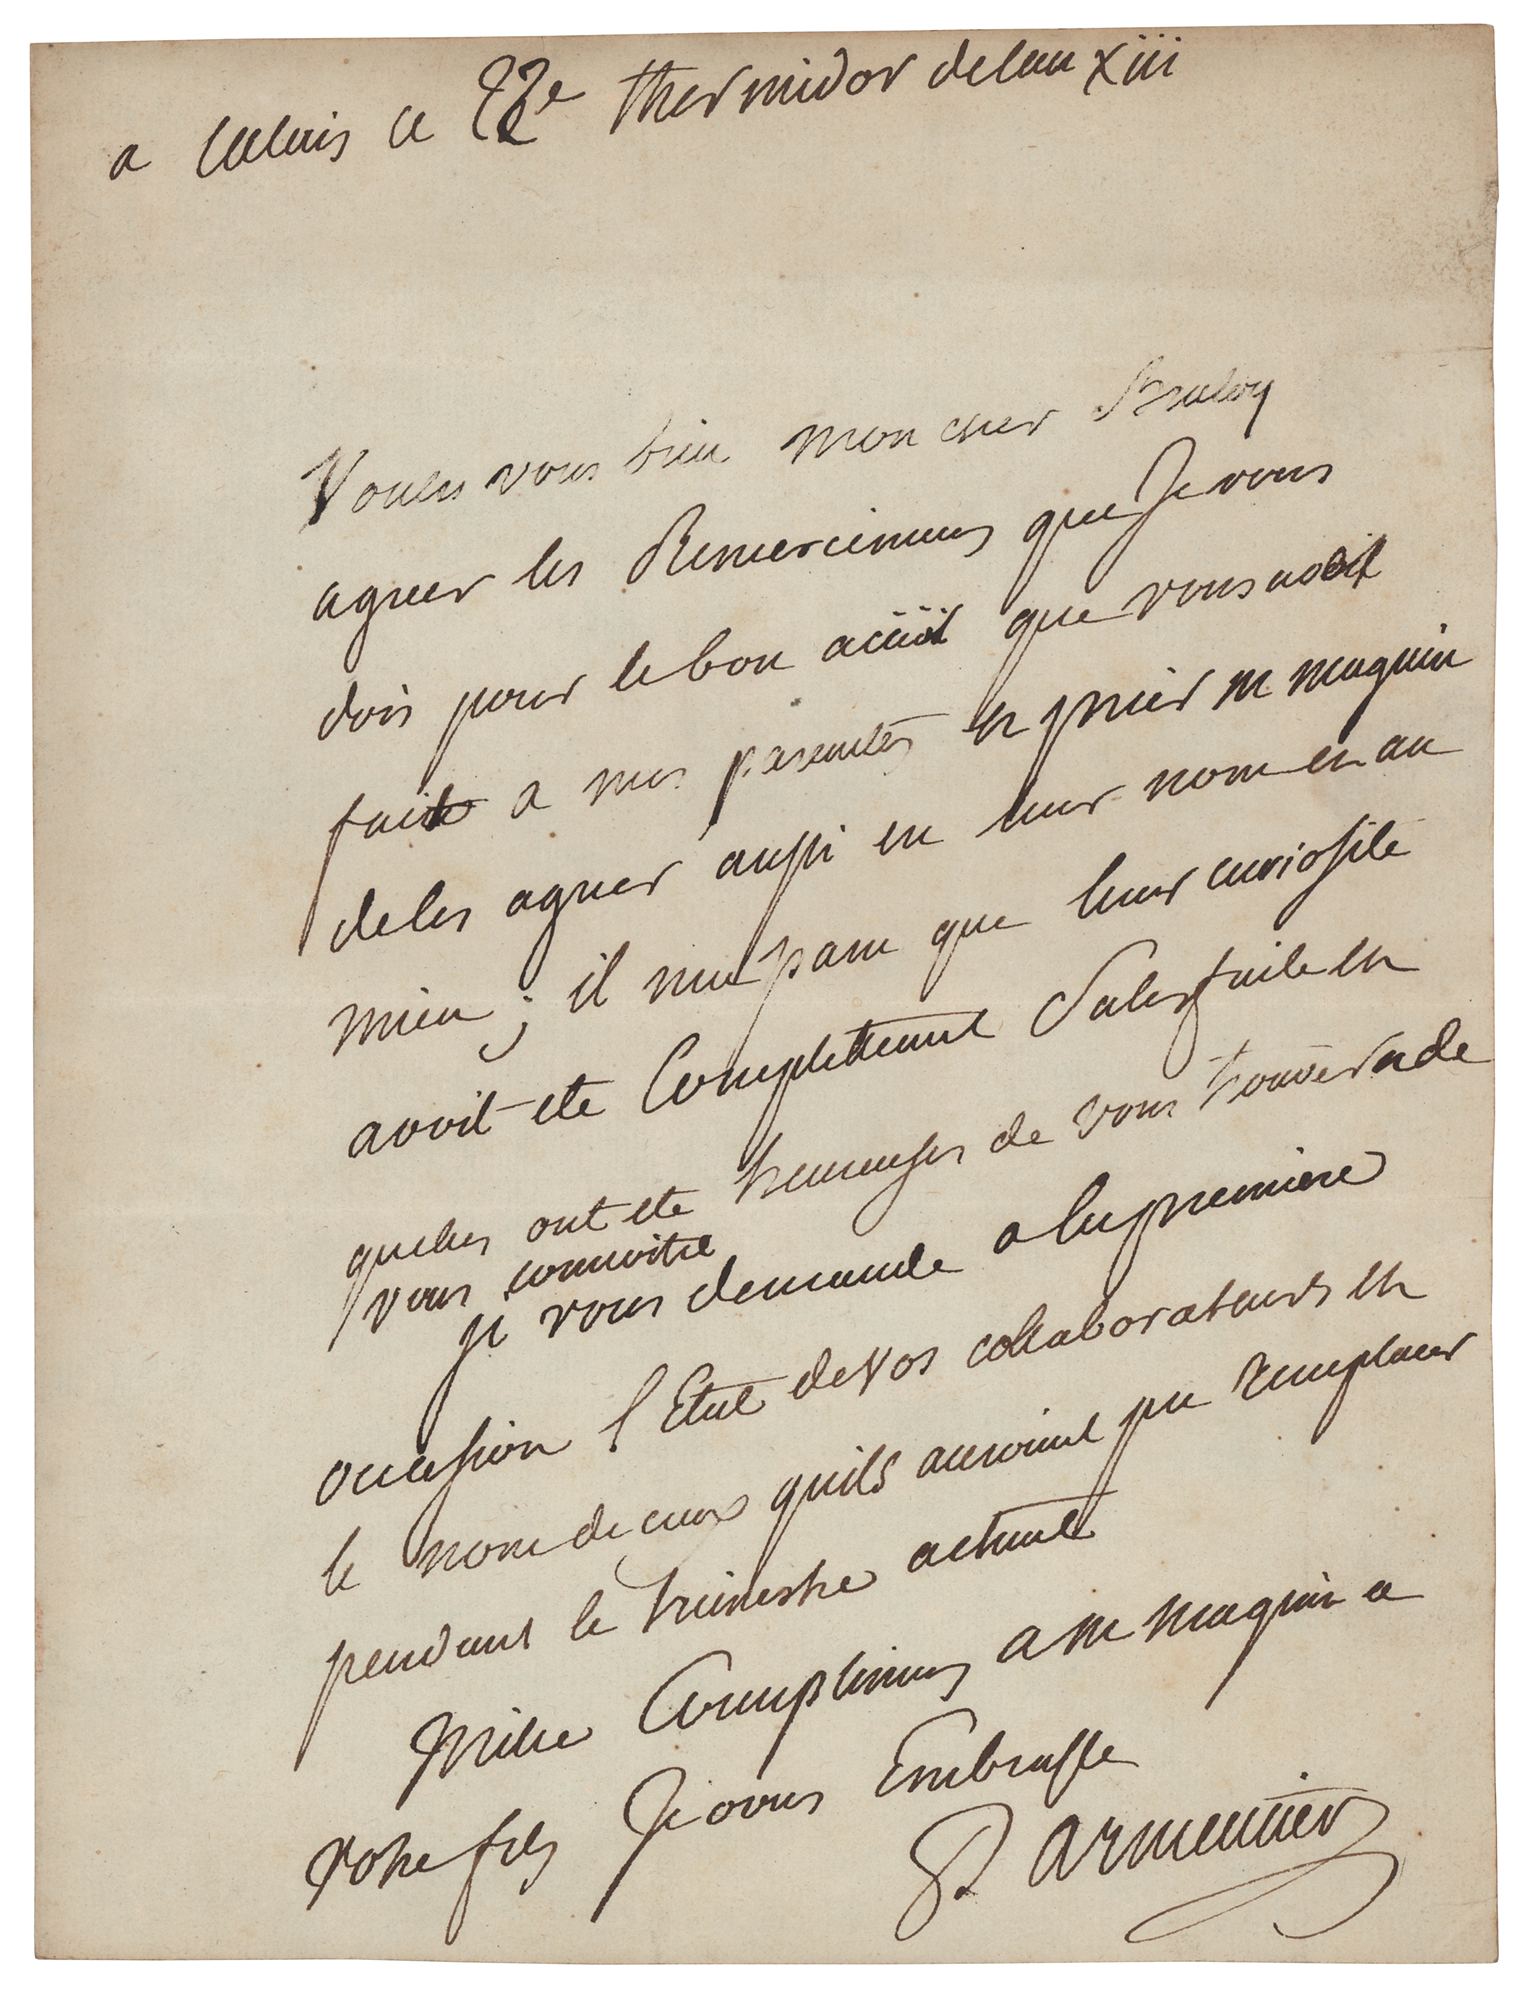 a Calais ce 22e thermidor de lan xiii
Voules vous bien mon cher
agreer les Remercimens que Je vous
dois pour le bon que vous
fait a mes parentes et prier m maquin
de les agreer aussi en leur nom et au
mien ; il me paru que leur curiosité
avoit été Complettement Satisfaite et
quelles ont été heureuses de vous
vous connoitre
je vous demande a la premiere
occasion l'Etat de Vos collaborateurs et
le nom de ceux quils auroient pu remplacer
pendant le trimestre actuel
Mille Complimens a m maquin a
votre fils Je vous Embrasse
Parmentier